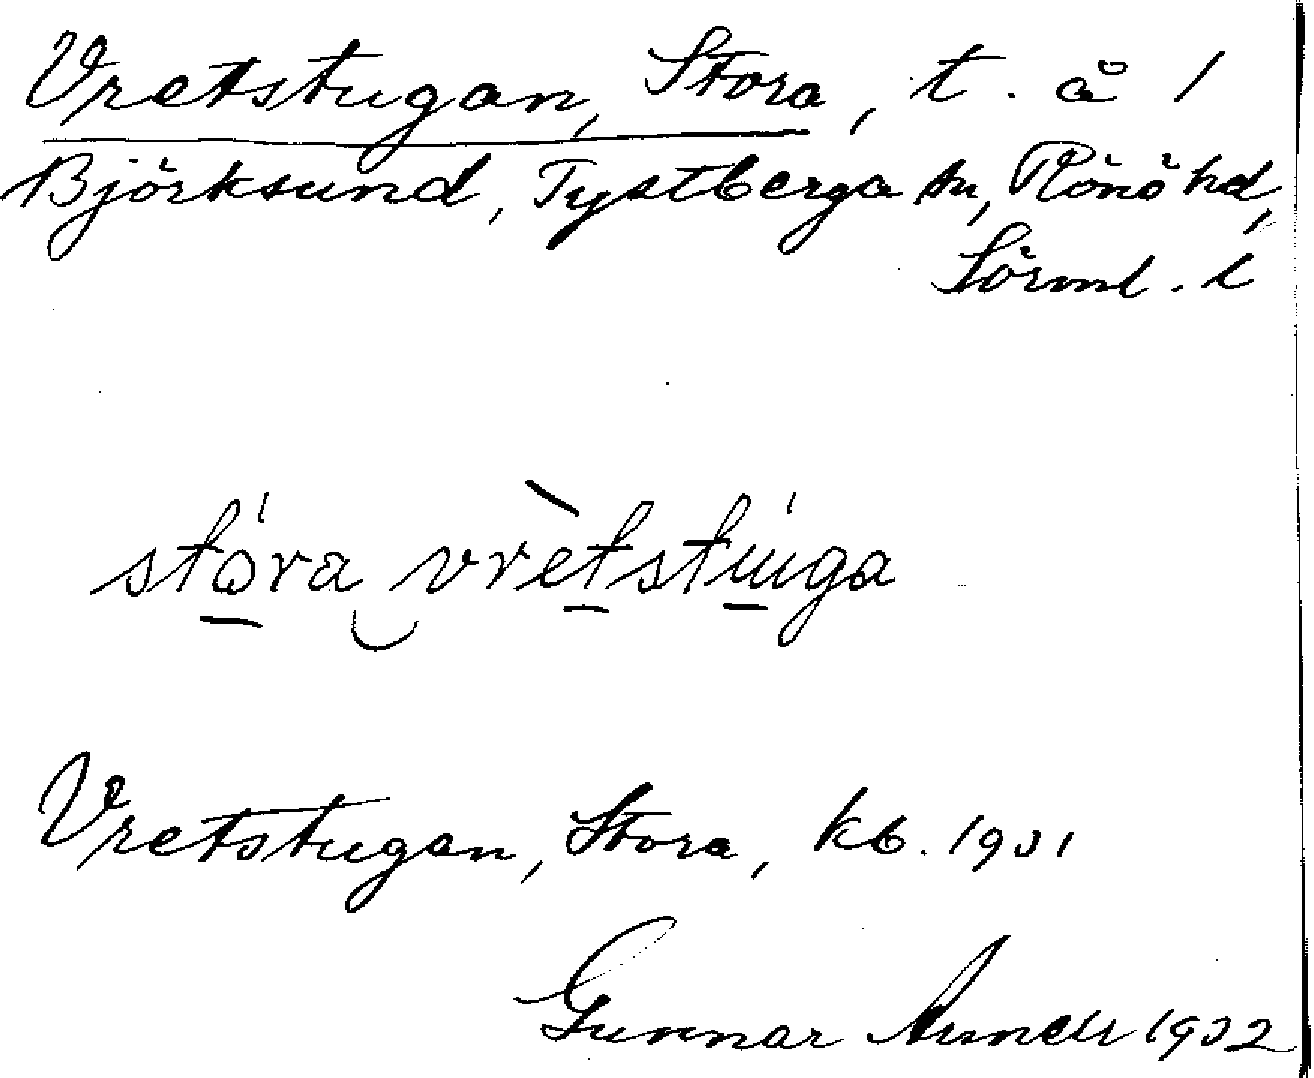 Vretstugan, Stora, t. å 1
Björksund, Tystberga sn, Rönö hd,
Sörml. l
stóra vrètstúga
Vretstugan, Stora, kb. 1901
Gunnar 1932